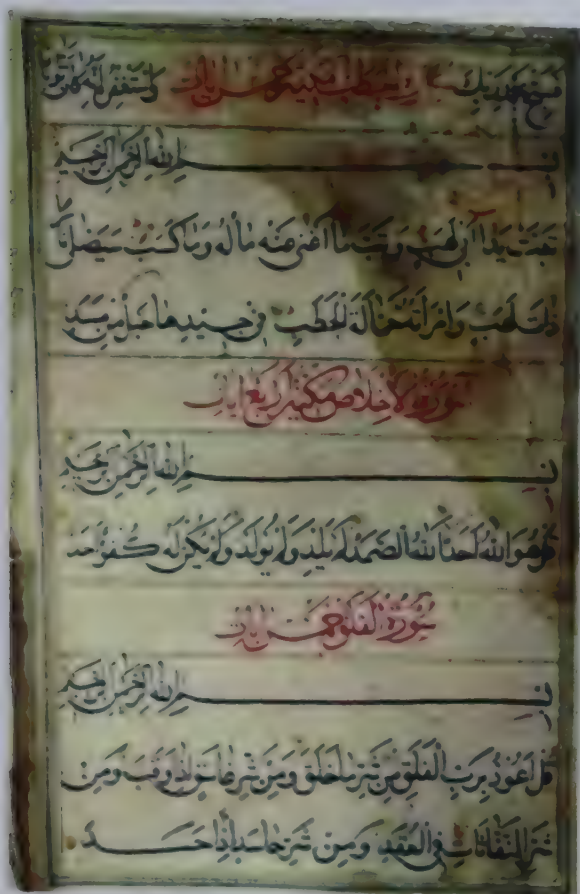 فسبح بحمد ربك سورة الحطب مكية خمس ايات واستغفره انه كان توابا
بسم الله الرحمن الرحيم
تبت يدا ابي لهب وتب ما اغنى عنه ماله وما كسب سيصلى نارا
ذات لهب وامرأته حمالة الحطب في جيدها حبل من مسد
سورة الاخلاص مكية اربع ايات
بسم الله الرحمن الرحيم
قل هو الله احد الله الصمد لم يلد ولم يولد ولم يكن له كفوا احد
سورة الفلق خمس ايات
بسم الله الرحمن الرحيم
قل اعوذ برب الفلق من شر ما خلق ومن شر غاسق اذا وقب ومن
شر النفاثات في العقد ومن شر حاسد اذا حسد